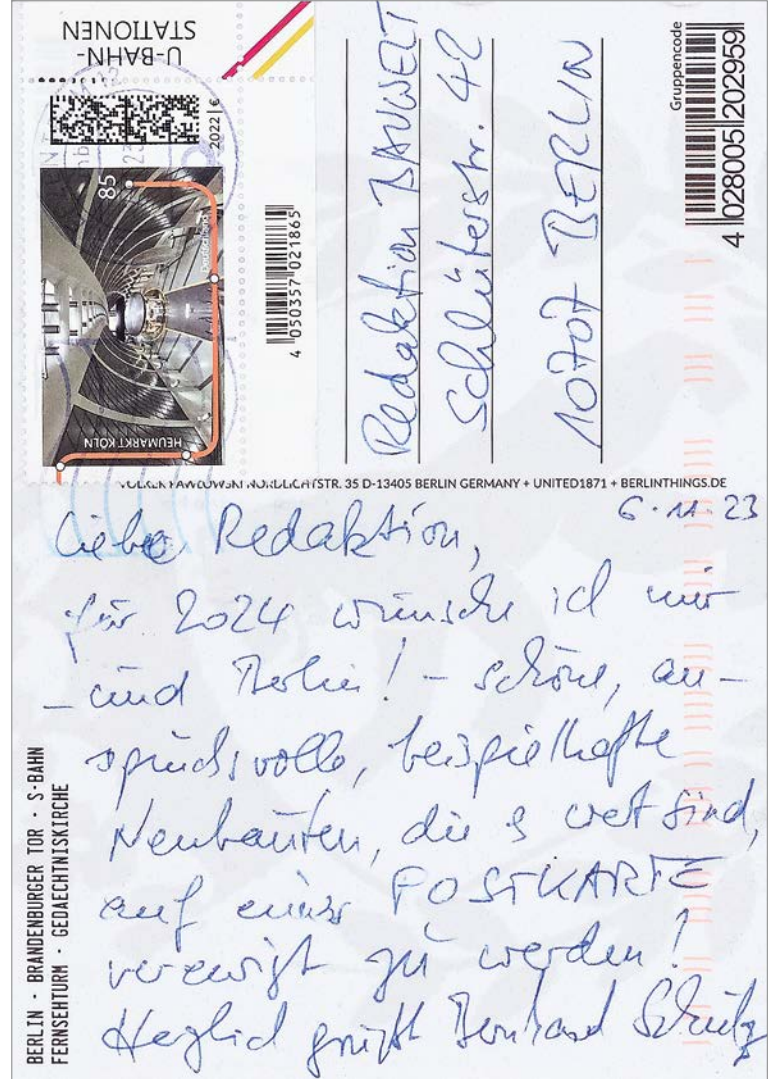 U-BAHN-
STATIONEN
2022 | €
85
Deutschland
HEUMARKT KÖLN
4 050357 021865
Redaktion BAUWELT
Schlüterstr. 42
10707 BERLIN
Gruppencode
4 028005 202959
VOLKER PAWLOWSKI NORDLICHTSTR. 35 D-13405 BERLIN GERMANY + UNITED1871 + BERLINTHINGS.DE
6.11.23
Liebe Redaktion,
für 2024 wünsche ich mir
– und Berlin! – schöne, an-
spruchsvolle, beispielhafte
Neubauten, die s wert sind,
auf einer POSTKARTE
verewigt zu werden!
Herzlich grüßt Bernhard Schulz
BERLIN · BRANDENBURGER TOR · S-BAHN
FERNSEHTURM · GEDAECHTNISKIRCHE